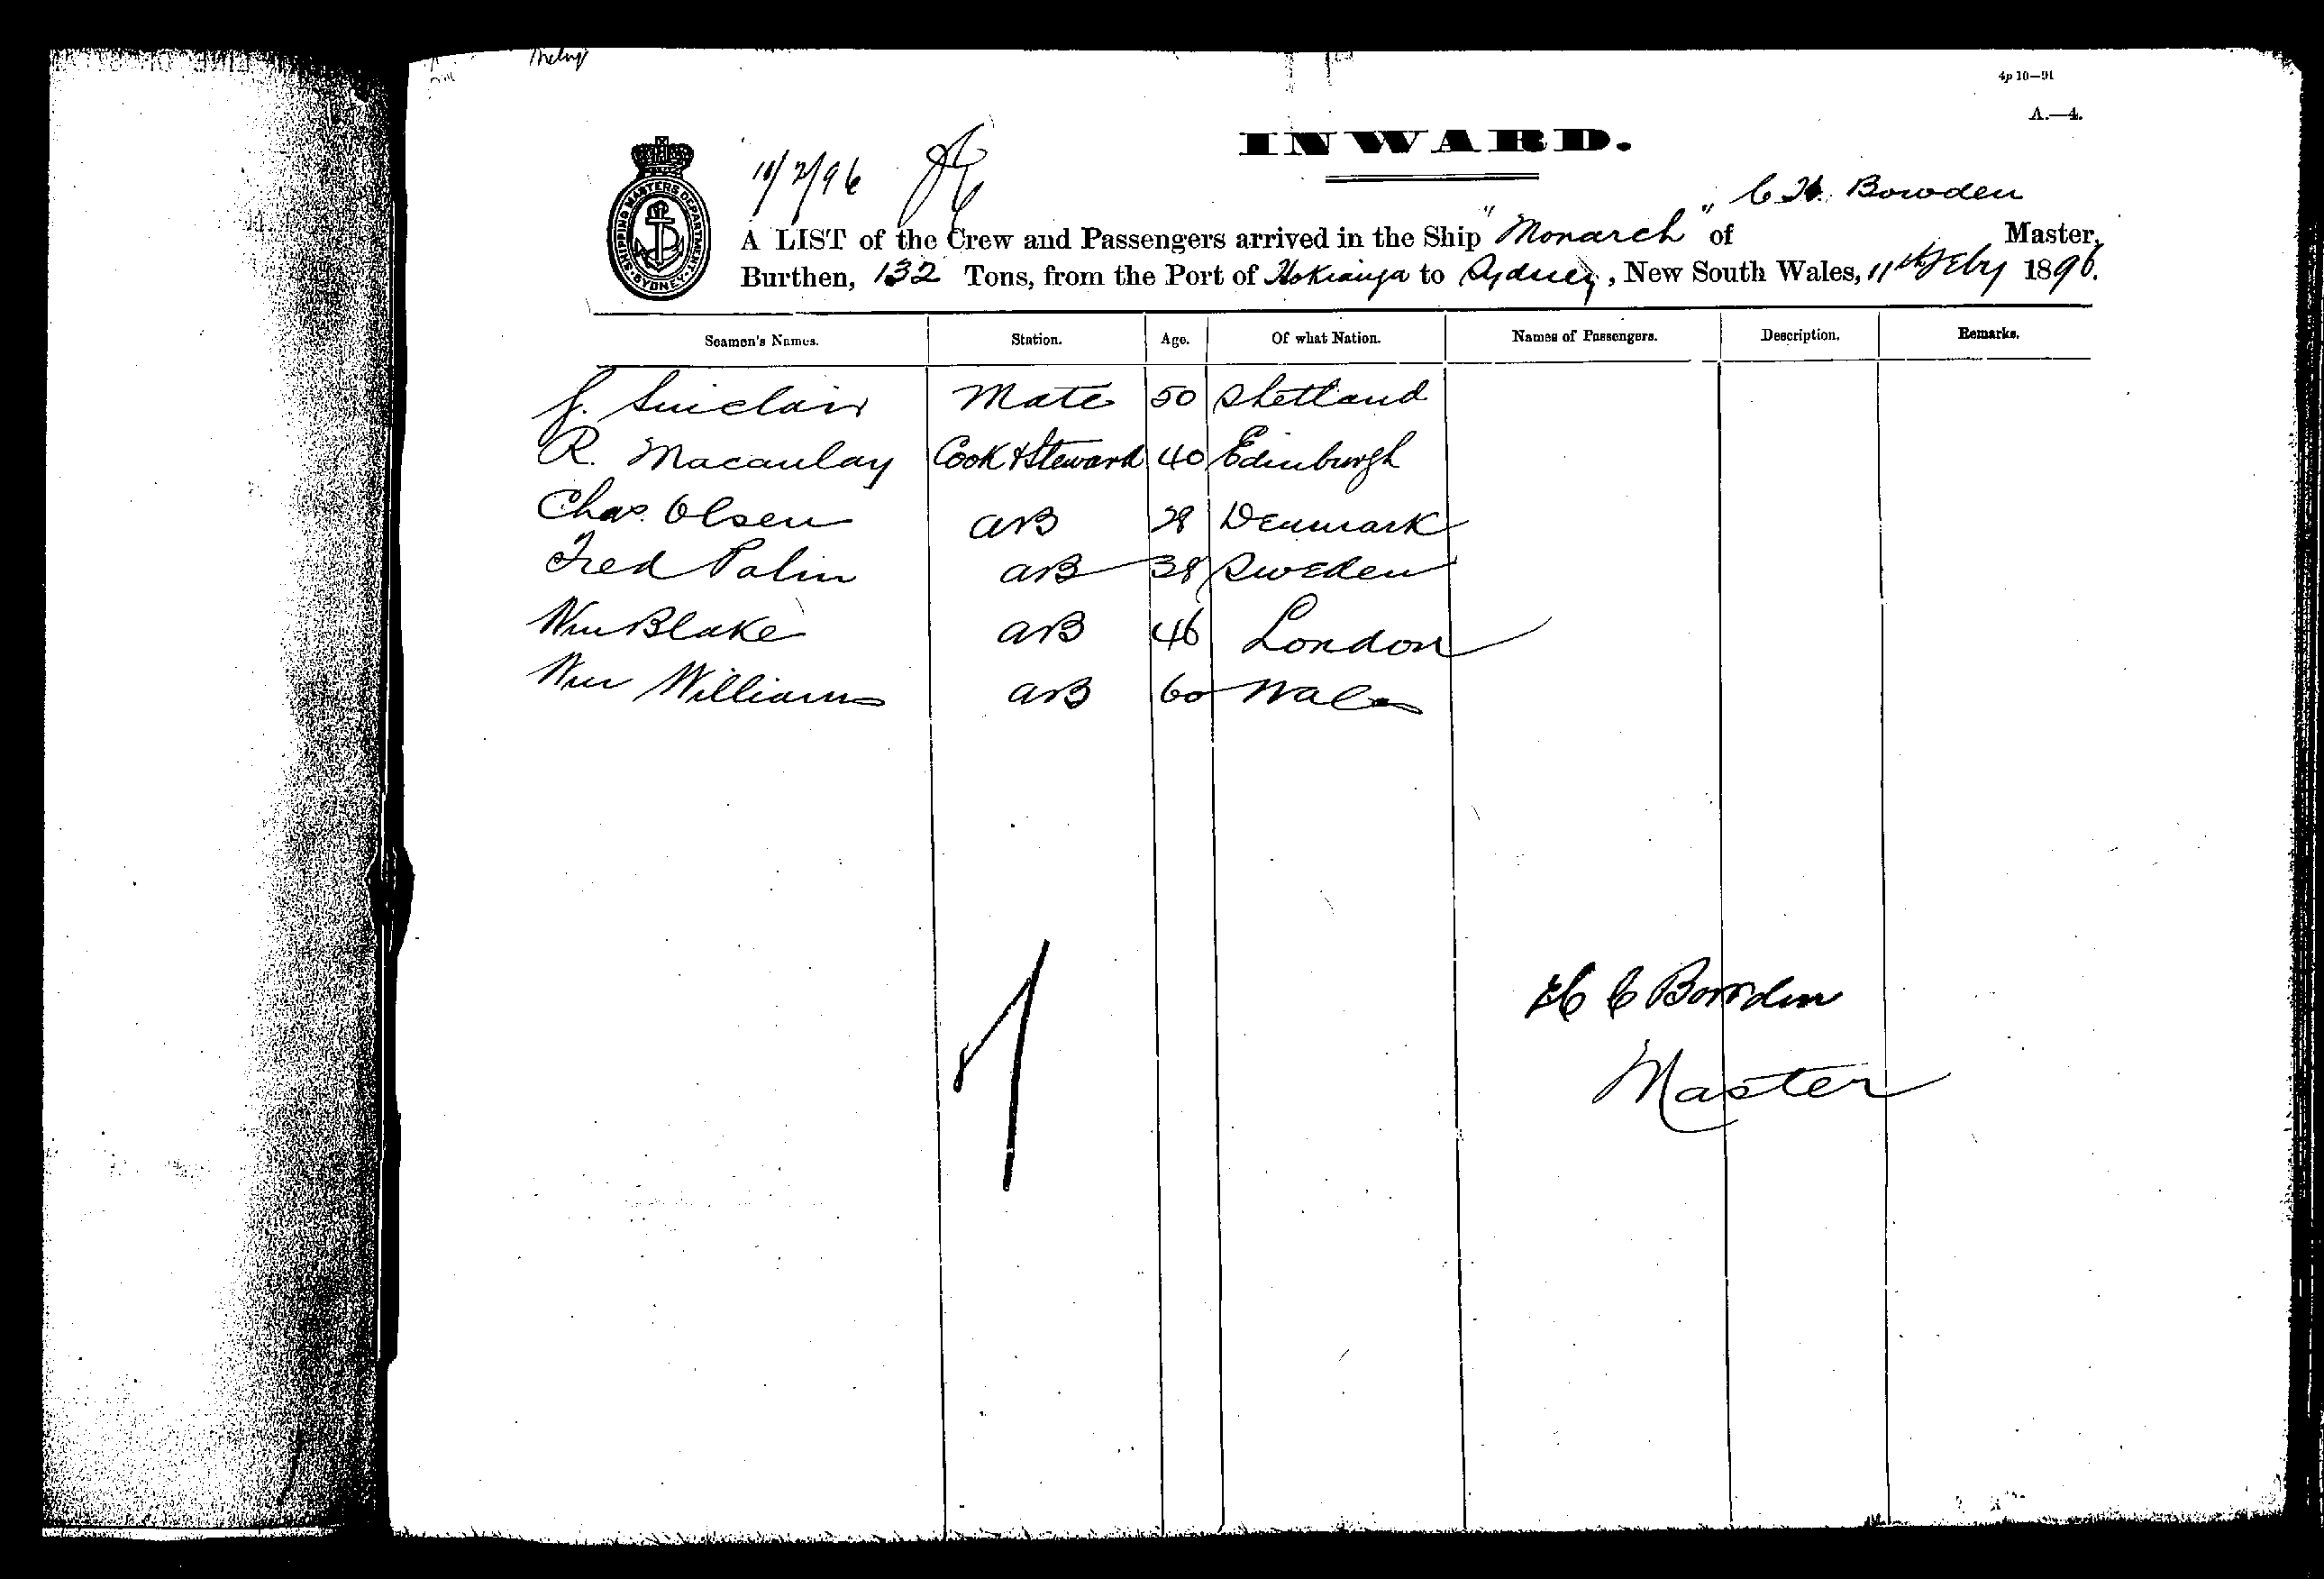 4p 10—91
A.—4.
INWARD.
11/2/96
SHIPPING MASTERS DEPARTMENT SYDNEY
C H. Bowden
A LIST of the Crew and Passengers arrived in the Ship "Monarch" of Master,
Burthen, 132 Tons, from the Port of Hokianga to Sydney, New South Wales, 11th Feby 1896.
Seamen's Names. Station. Age. Of what Nation. Names of Passengers. Description. Remarks.
J. Sinclair Mate 50 Shetland
R. Macaulay Cook & Steward 40 Edinburgh
Chas. Olsen AB 28 Denmark
Fred Palin AB 38 Sweden
Wm Blake AB 46 London
Wm Williams AB 60 Wales
H C Bowden
Master